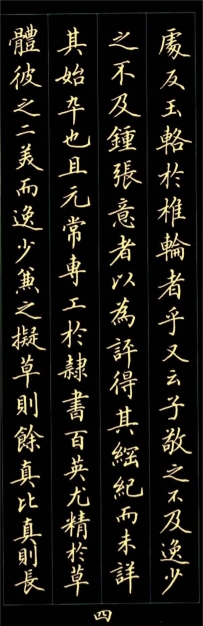 處反玉輅於椎輪者乎又云子敬之不及逸少
之不及鍾張意者以為評得其綱紀而未詳
其始卒也且元常專工於隸書百英尤精於草
體彼之二美而逸少兼之擬草則餘真比真則長
四